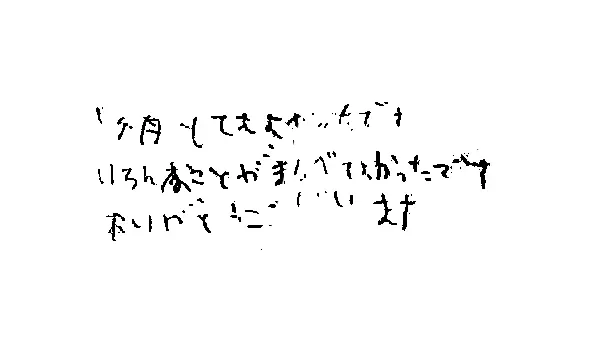 ヶ月とてもよかったです
いろんなことがまなべてよかったです
ありがとうございます